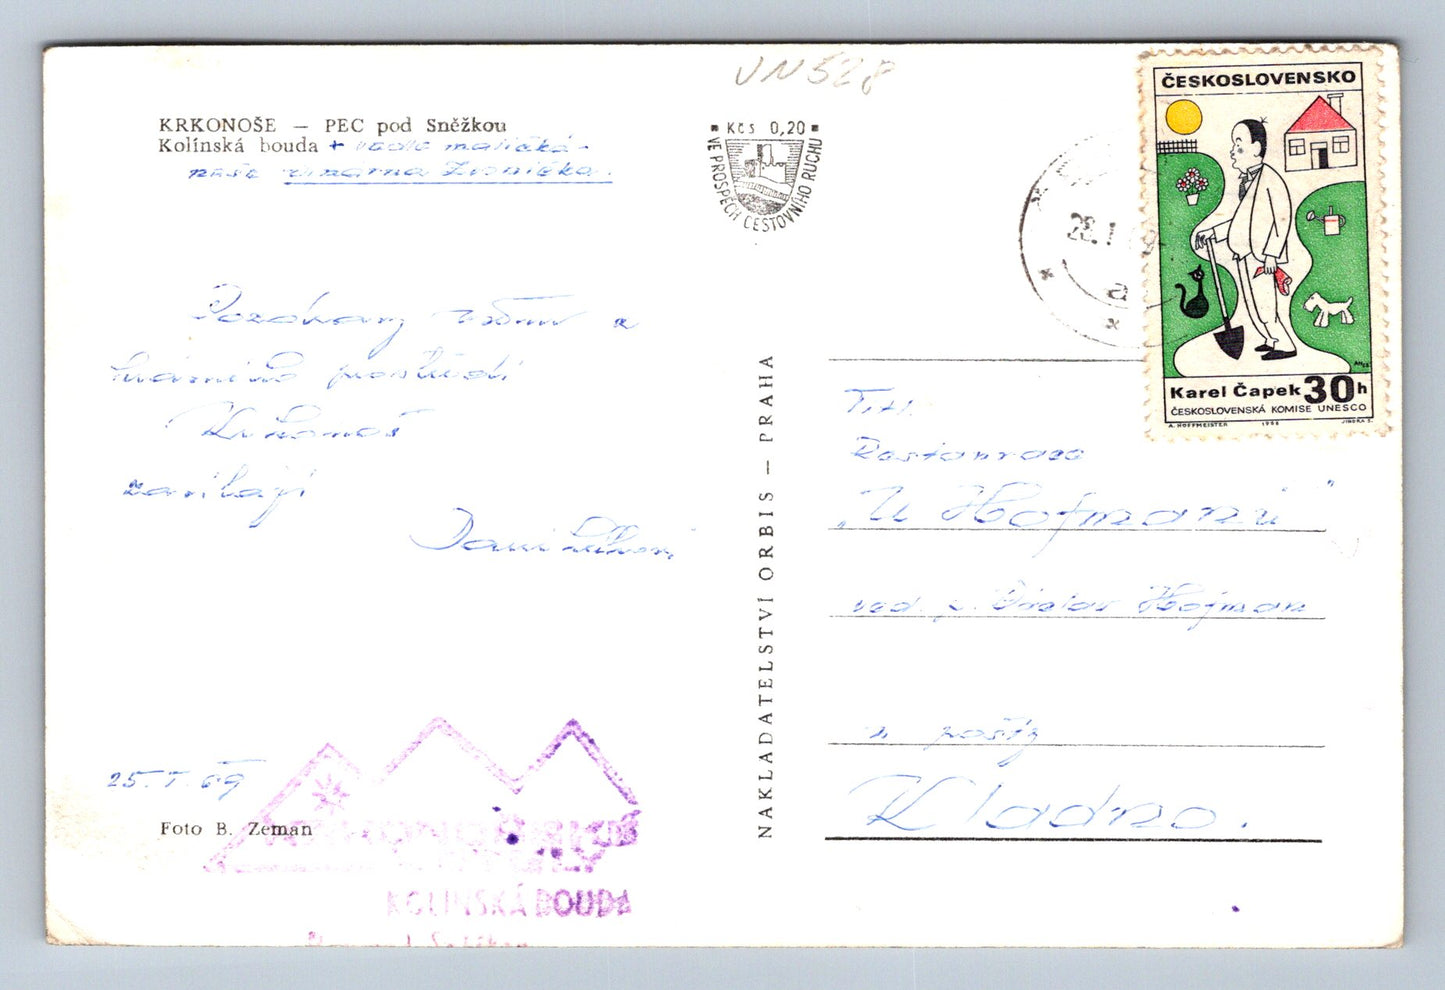 VN528
KRKONOŠE — PEC pod Sněžkou
Kolínská bouda + vedle maličká -
naše vinárna Zvonička.
Kčs 0,20
VE PROSPĚCH CESTOVNÍHO RUCHU
28.1
a
ČESKOSLOVENSKO
Karel Čapek 30h
ČESKOSLOVENSKÁ KOMISE UNESCO
A. HOFFMEISTER 1968 JINDRA S.
Pozdravy z
krásného prostředí
Krkonoš
zasílají
25.I.69
Foto B. Zeman
KOLÍNSKÁ BOUDA
NAKLADATELSTVÍ ORBIS — PRAHA
Tit.
Restaurace
„U Hofmanů"
ved. p. Hofman
u pošty
Kladno.